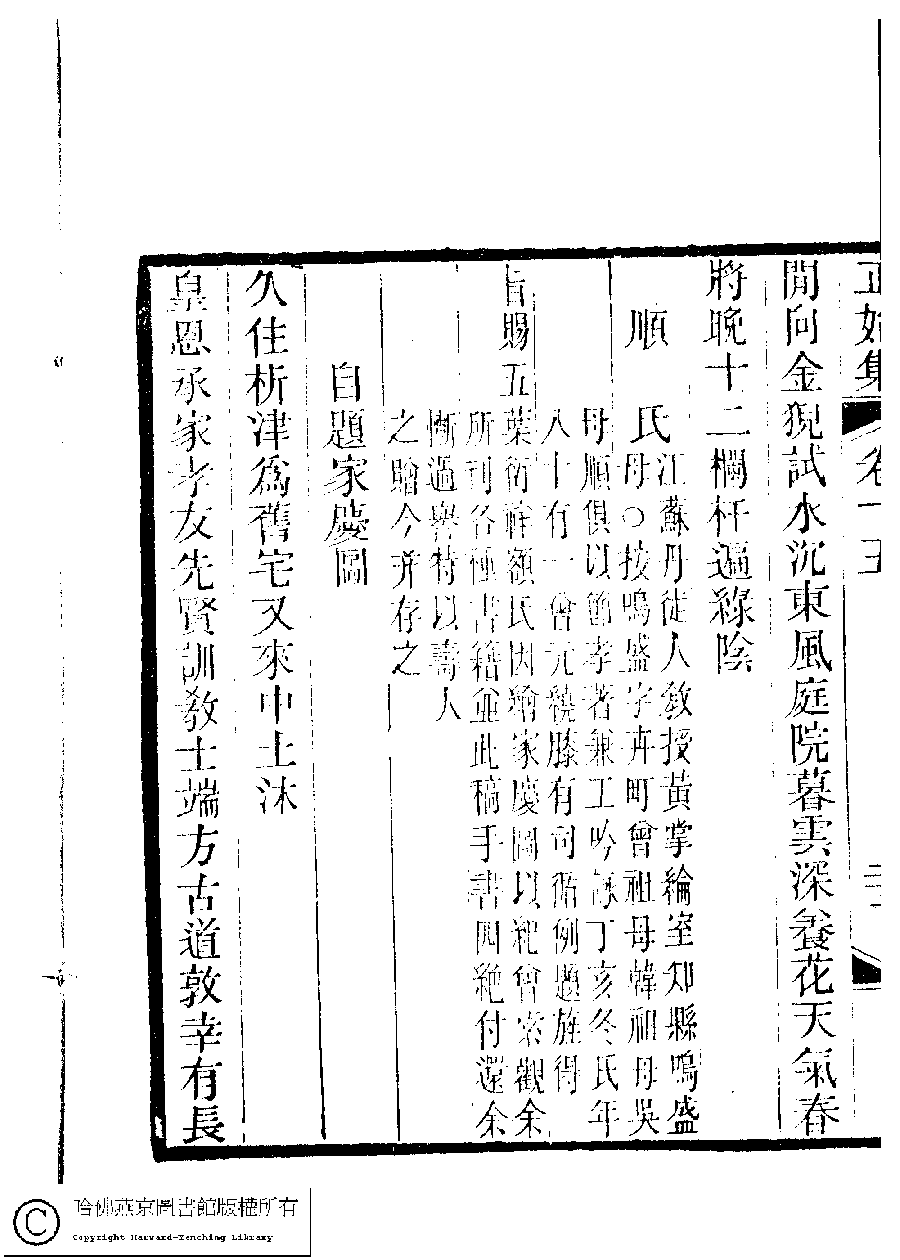 正始集 卷十五 二十一
閒向金猊試水沉東風庭院暮雲深養花天氣春
將晚十二欄杆遍綠陰
順氏
江蘇丹徒人敘授黃掌綸室知縣鳴盛
母○按鳴盛字卉町曾祖母韓祖母吳
母順俱以節孝著兼工吟詠丁亥冬氏年
八十有一曾元繞膝有司循例題旌得
旨賜五葉衍祥額氏因繪家慶圖以紀曾索觀余
所刊各種書籍並此稿手書四絕付還余
慚過譽特以壽人
之贈今併存之
自題家慶圖
久住析津為舊宅又來中土沐
皇恩承家孝友先賢訓教士端方古道敦幸有長
哈佛燕京圖書館版權所有
Copyright Harvard-Yenching Library